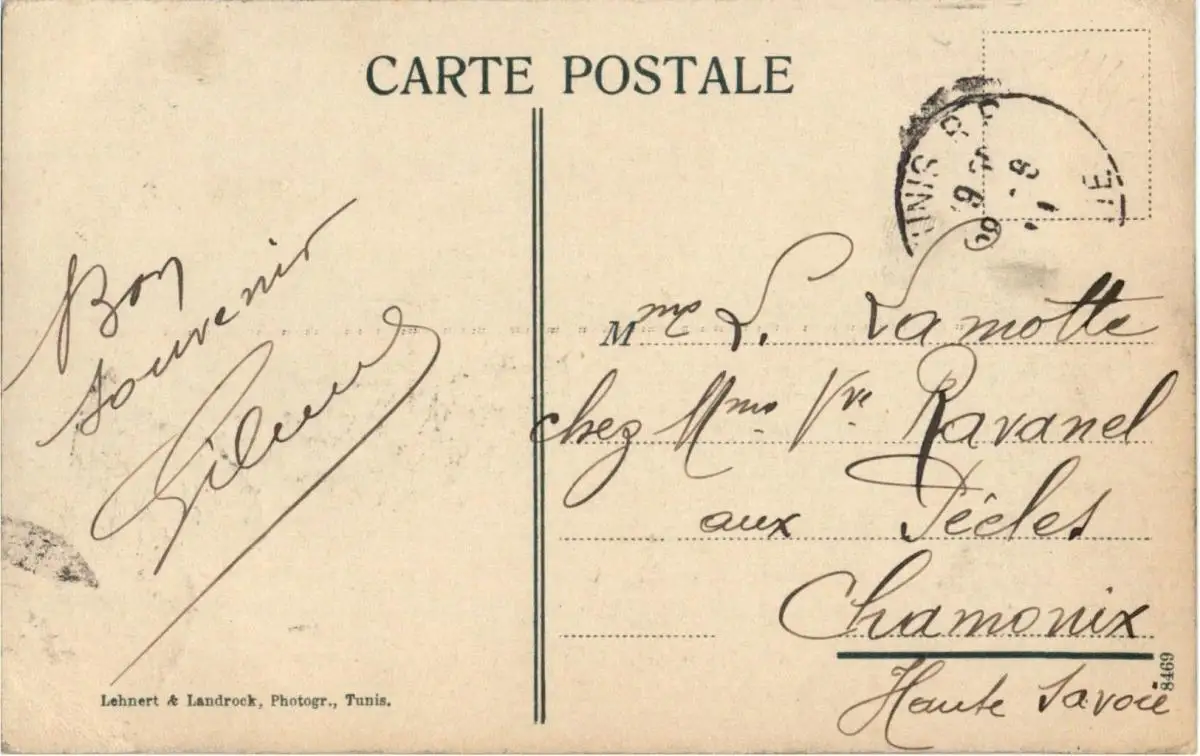 CARTE POSTALE
Bon
souvenir
Mme L. Lamotte
chez Mme Vve Ravanel
aux Pècles
Chamonix
Haute Savoie
Lehnert & Landrock, Photogr., Tunis.
8469